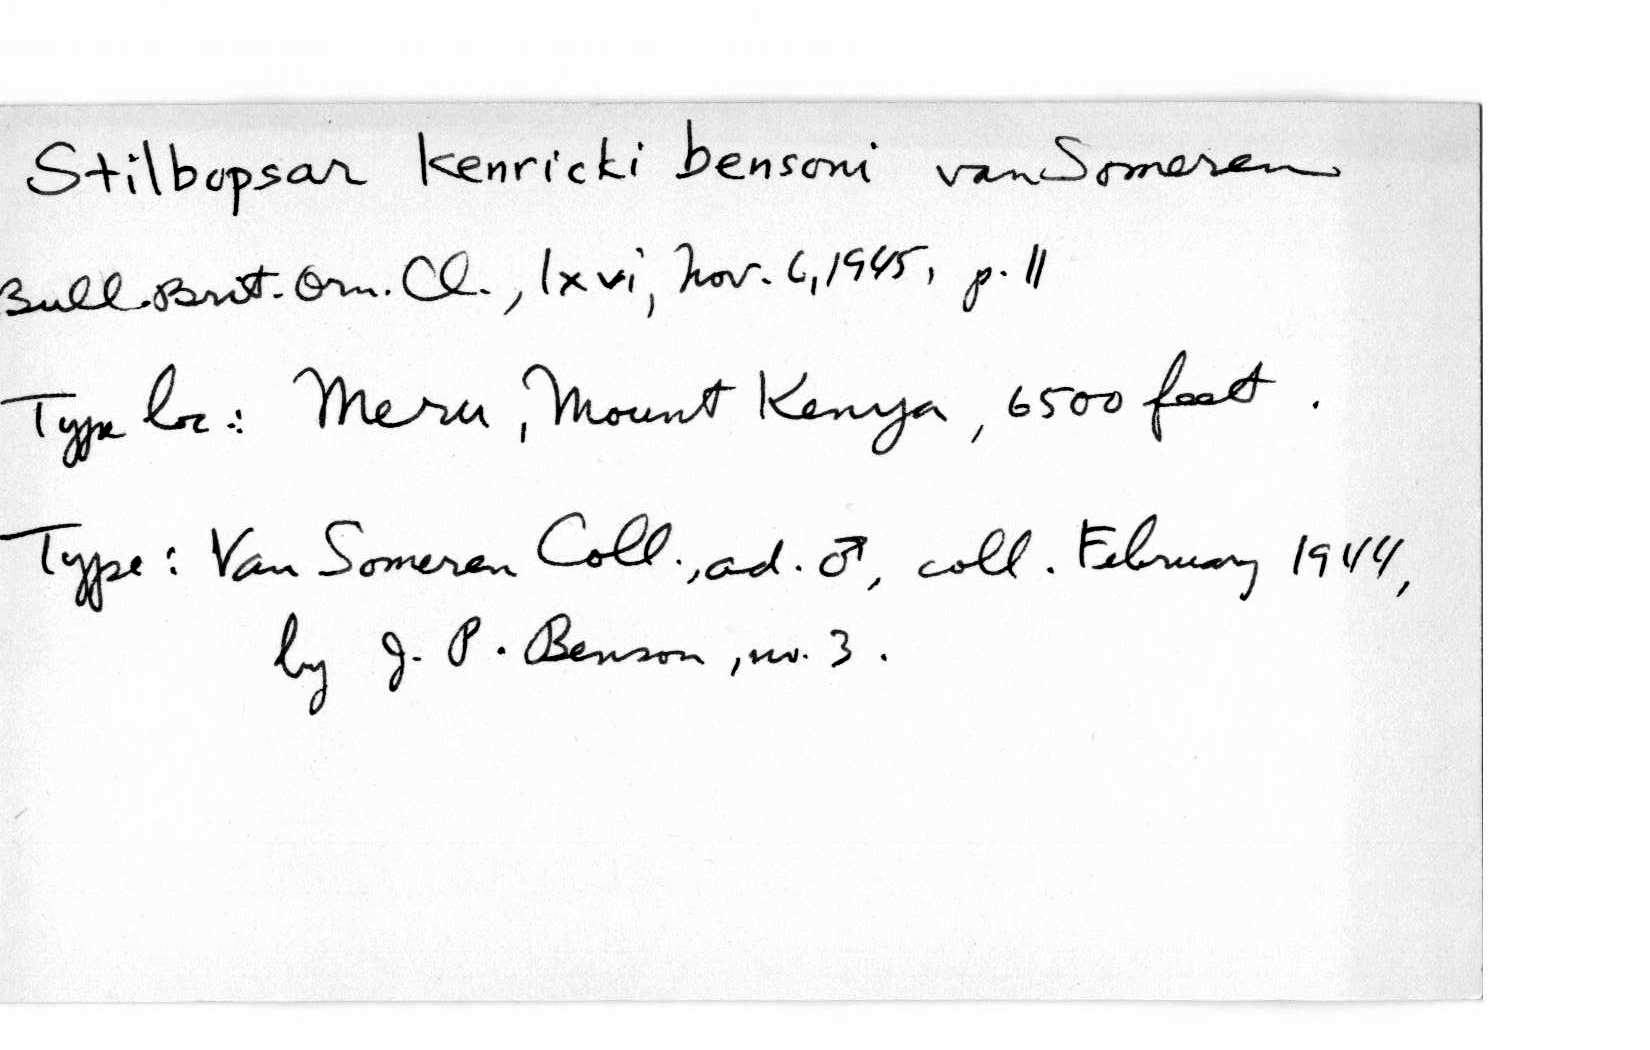 Stilbopsar kenricki bensoni van Someren
Bull. Brit. Orn. Cl., lxvi, Nov. 6, 1945, p. 11
Type loc.: Meru, Mount Kenya, 6500 feet.
Type: Van Someren Coll., ad. ♂, coll. February 1944,
by J. P. Benson, no. 3.